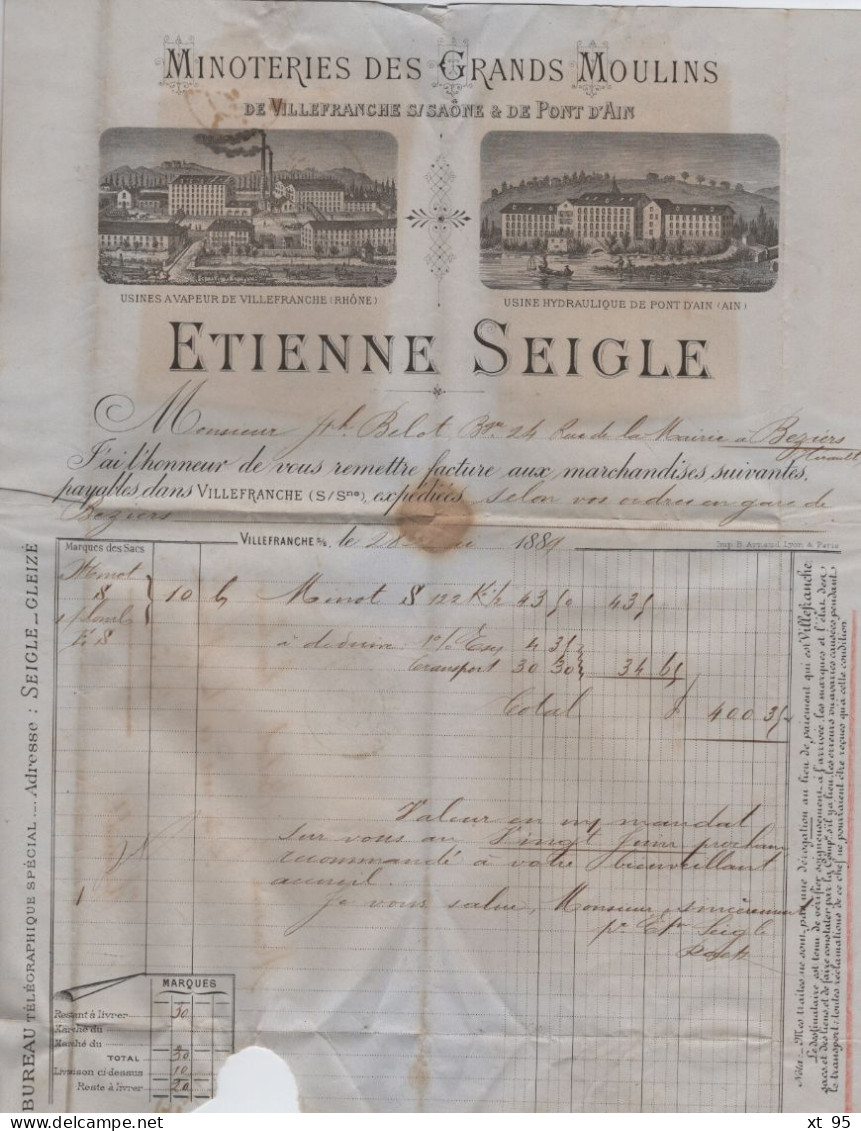 MINOTERIES DES GRANDS MOULINS
DE VILLEFRANCHE S/SAÔNE & DE PONT D'AIN
USINES A VAPEUR DE VILLEFRANCHE (RHÔNE)
USINE HYDRAULIQUE DE PONT D'AIN (AIN)
ETIENNE SEIGLE
Monsieur Jph. Belot 24 Rue de la Mairie à Beziers
Herault
J'ai l'honneur de vous remettre facture aux marchandises suivantes,
payables dans VILLEFRANCHE (S/Sne), expédiées selon vos ordres en gare de
Beziers
VILLEFRANCHE S/S, le 28 1889
Imp. B. Arnaud Lyon & Paris
Marques des Sacs
Minot
S 10 Minot S 122 K 43 50 435
à déduire 1% Esc 4 35
transport 30 30 34 65
Total 400 35
Valeur en mandat
sur vous au Vingt Juin prochain
recommandé à votre bienveillant
accueil.
Je vous salue, Monsieur, sincèrement
Seigle
MARQUES
Restant à livrer 30
Marché du
Marché du
TOTAL 30
Livraison ci-dessus 10
Reste à livrer 20
BUREAU TÉLÉGRAPHIQUE SPÉCIAL .... Adresse : SEIGLE_GLEIZÉ
Nota._ Mes traites ne sont pas une dérogation au lieu de paiement qui est Villefranche
Le destinataire est tenu de vérifier soigneusement, à l'arrivée, les marques et l'état des
sacs et des liens et de faire constater par la Comp.ie s'il y a lieu, les erreurs ou avaries causées pendant
le transport: toutes réclamations de ce chef ne pourraient être reçues qu'à cette condition.
xt 95